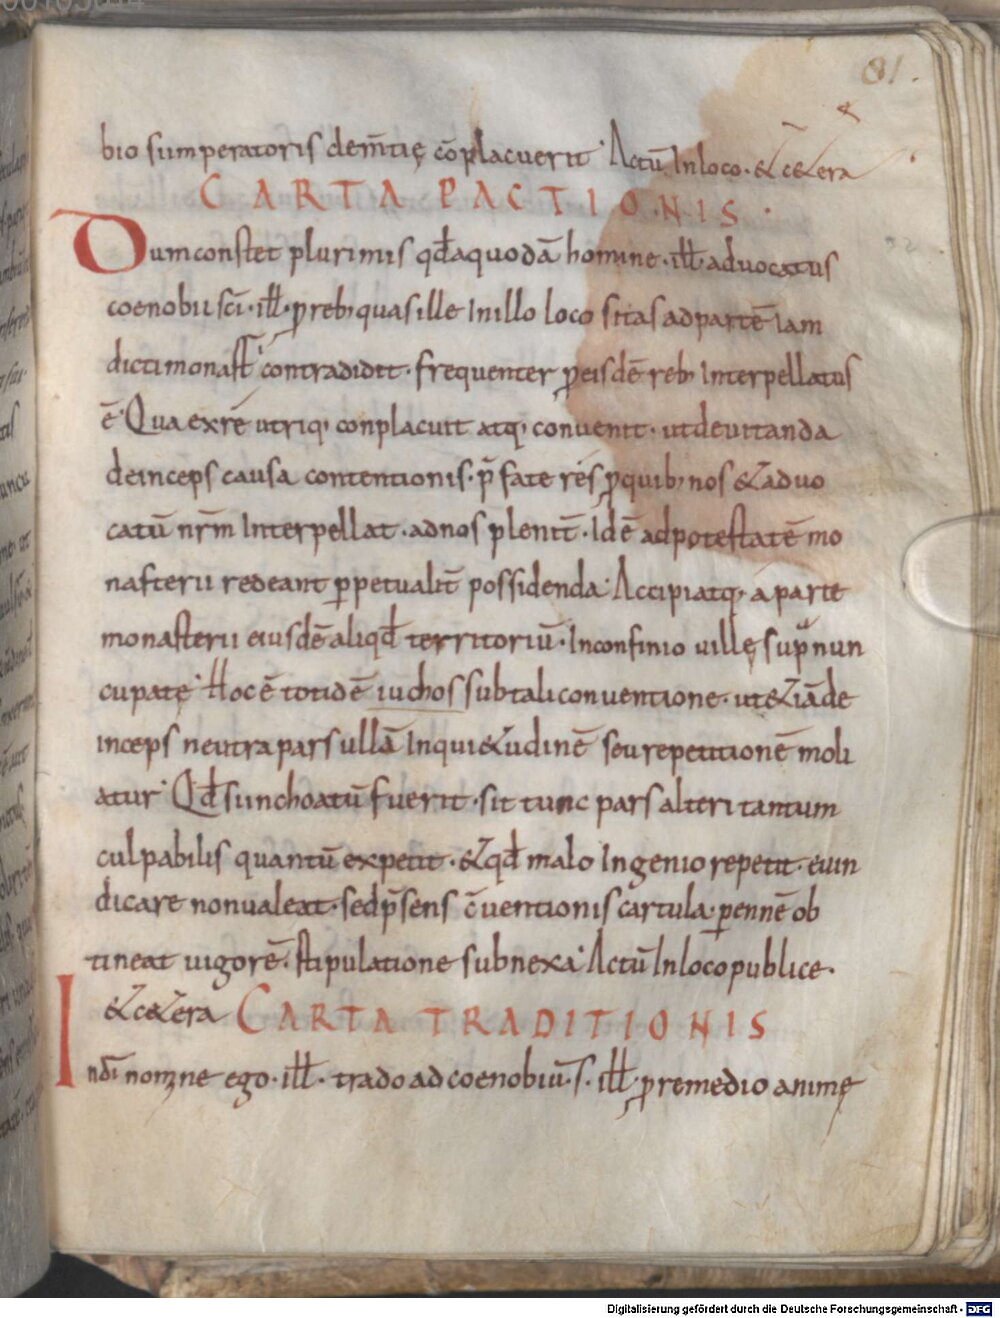 81.
bio sumperatoris dem̄tię cōplacuerit· Actū Inloco· & cetera
CARTA PACTIONIS·
Dumconstet plurimis qđaquodā homine· ill̄· aduocatus
coenobii sc̄i· ill̄· p̱ reb; quasille Inillo loco sitas adpartē Iam
dictimonast̄ contradidit· frequenter p̱eisdē reb; Interpellatus
ē· Qua exrē utriq; conplacuit atq; conuenit· utdeuitanda
deinceps causa contentionis· p̄fate rēs p̱quib; nos &aduo
catū nr̄m Interpellat· adnos plenit̄· Idē adpotestatē mo
nasterii redeant p̱petualit̄ possidenda· Accipiatq; a parte
monasterii eiusdē aliqđ territoriū· Inconfinio uillę sup̄nun
cupatę· Hoc ē totidē iuchos subtali conuentione· ut&iā de
inceps neutra pars ullā Inqui&udinē seu repetitionē moli
atur· Qđ si inchoatū fuerit· sit tunc pars alteri tantum
culpabilis quantū expetit· &qđ malo Ingenio repetit· euin
dicare nonualeat· sedp̄sens c̄uentionis cartula· p̱ennē ob
tineat uigorē· stipulatione subnexa· Actū Inloco publice·
&c&era CARTA TRADITIONIS
In dī nomine ego· ill̄· trado ad coenobiū· s̄· ill̄· p̱remedio animę
Digitalisierung gefördert durch die Deutsche Forschungsgemeinschaft - DFG